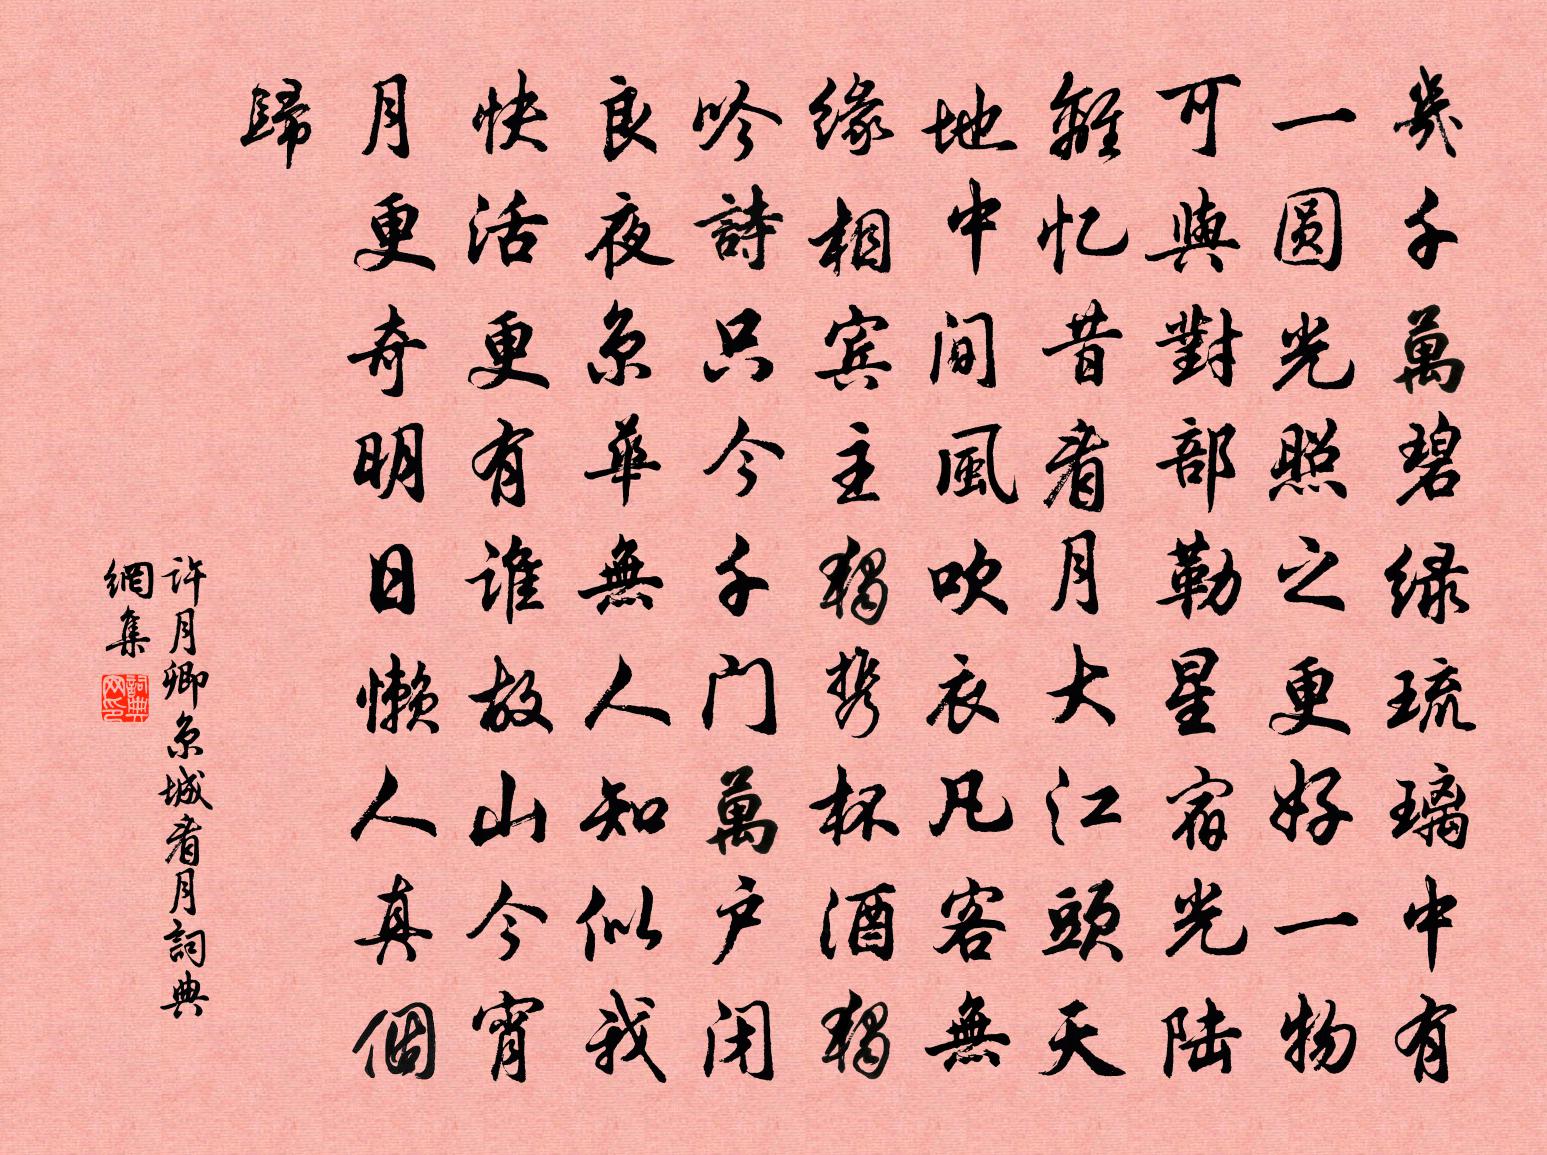 幾千萬碧绿琉璃中有
一圆光照之更好一物
可與對部勒星宿光陆
離忆昔看月大江頭天
地中间風吹衣凡客無
缘相宾主獨携杯酒獨
吟詩只今千门萬户闭
良夜京華無人知似我
快活更有谁故山今宵
月更奇明日懒人真個
歸
许月卿京城看月詞典
網集
詞典網印